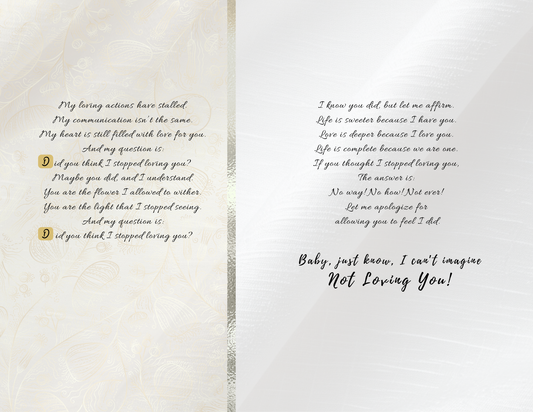 My loving actions have stalled.
My communication isn't the same.
My heart is still filled with love for you.
And my question is:
Did you think I stopped loving you?
Maybe you did, and I understand.
You are the flower I allowed to wither.
You are the light that I stopped seeing.
And my question is:
Did you think I stopped loving you?
I know you did, but let me affirm.
Life is sweeter because I have you.
Love is deeper because I love you.
Life is complete because we are one.
If you thought I stopped loving you,
The answer is:
No way! No how! Not ever!
Let me apologize for
allowing you to feel I did.
Baby, just know, I can't imagine
Not Loving You!